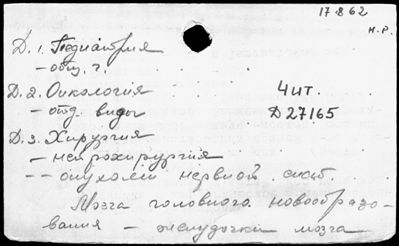 17 8 62
Н.Р.
Д. 1. Педиатрия
– общ. ч.
Д. 2. Онкология
– отд. виды
Чит.
Д 27165
Д. 3. Хирургия
– нейрохирургия
– – опухоли нервной сист.
Мозга головного новообразо-
вания – желудочки мозга